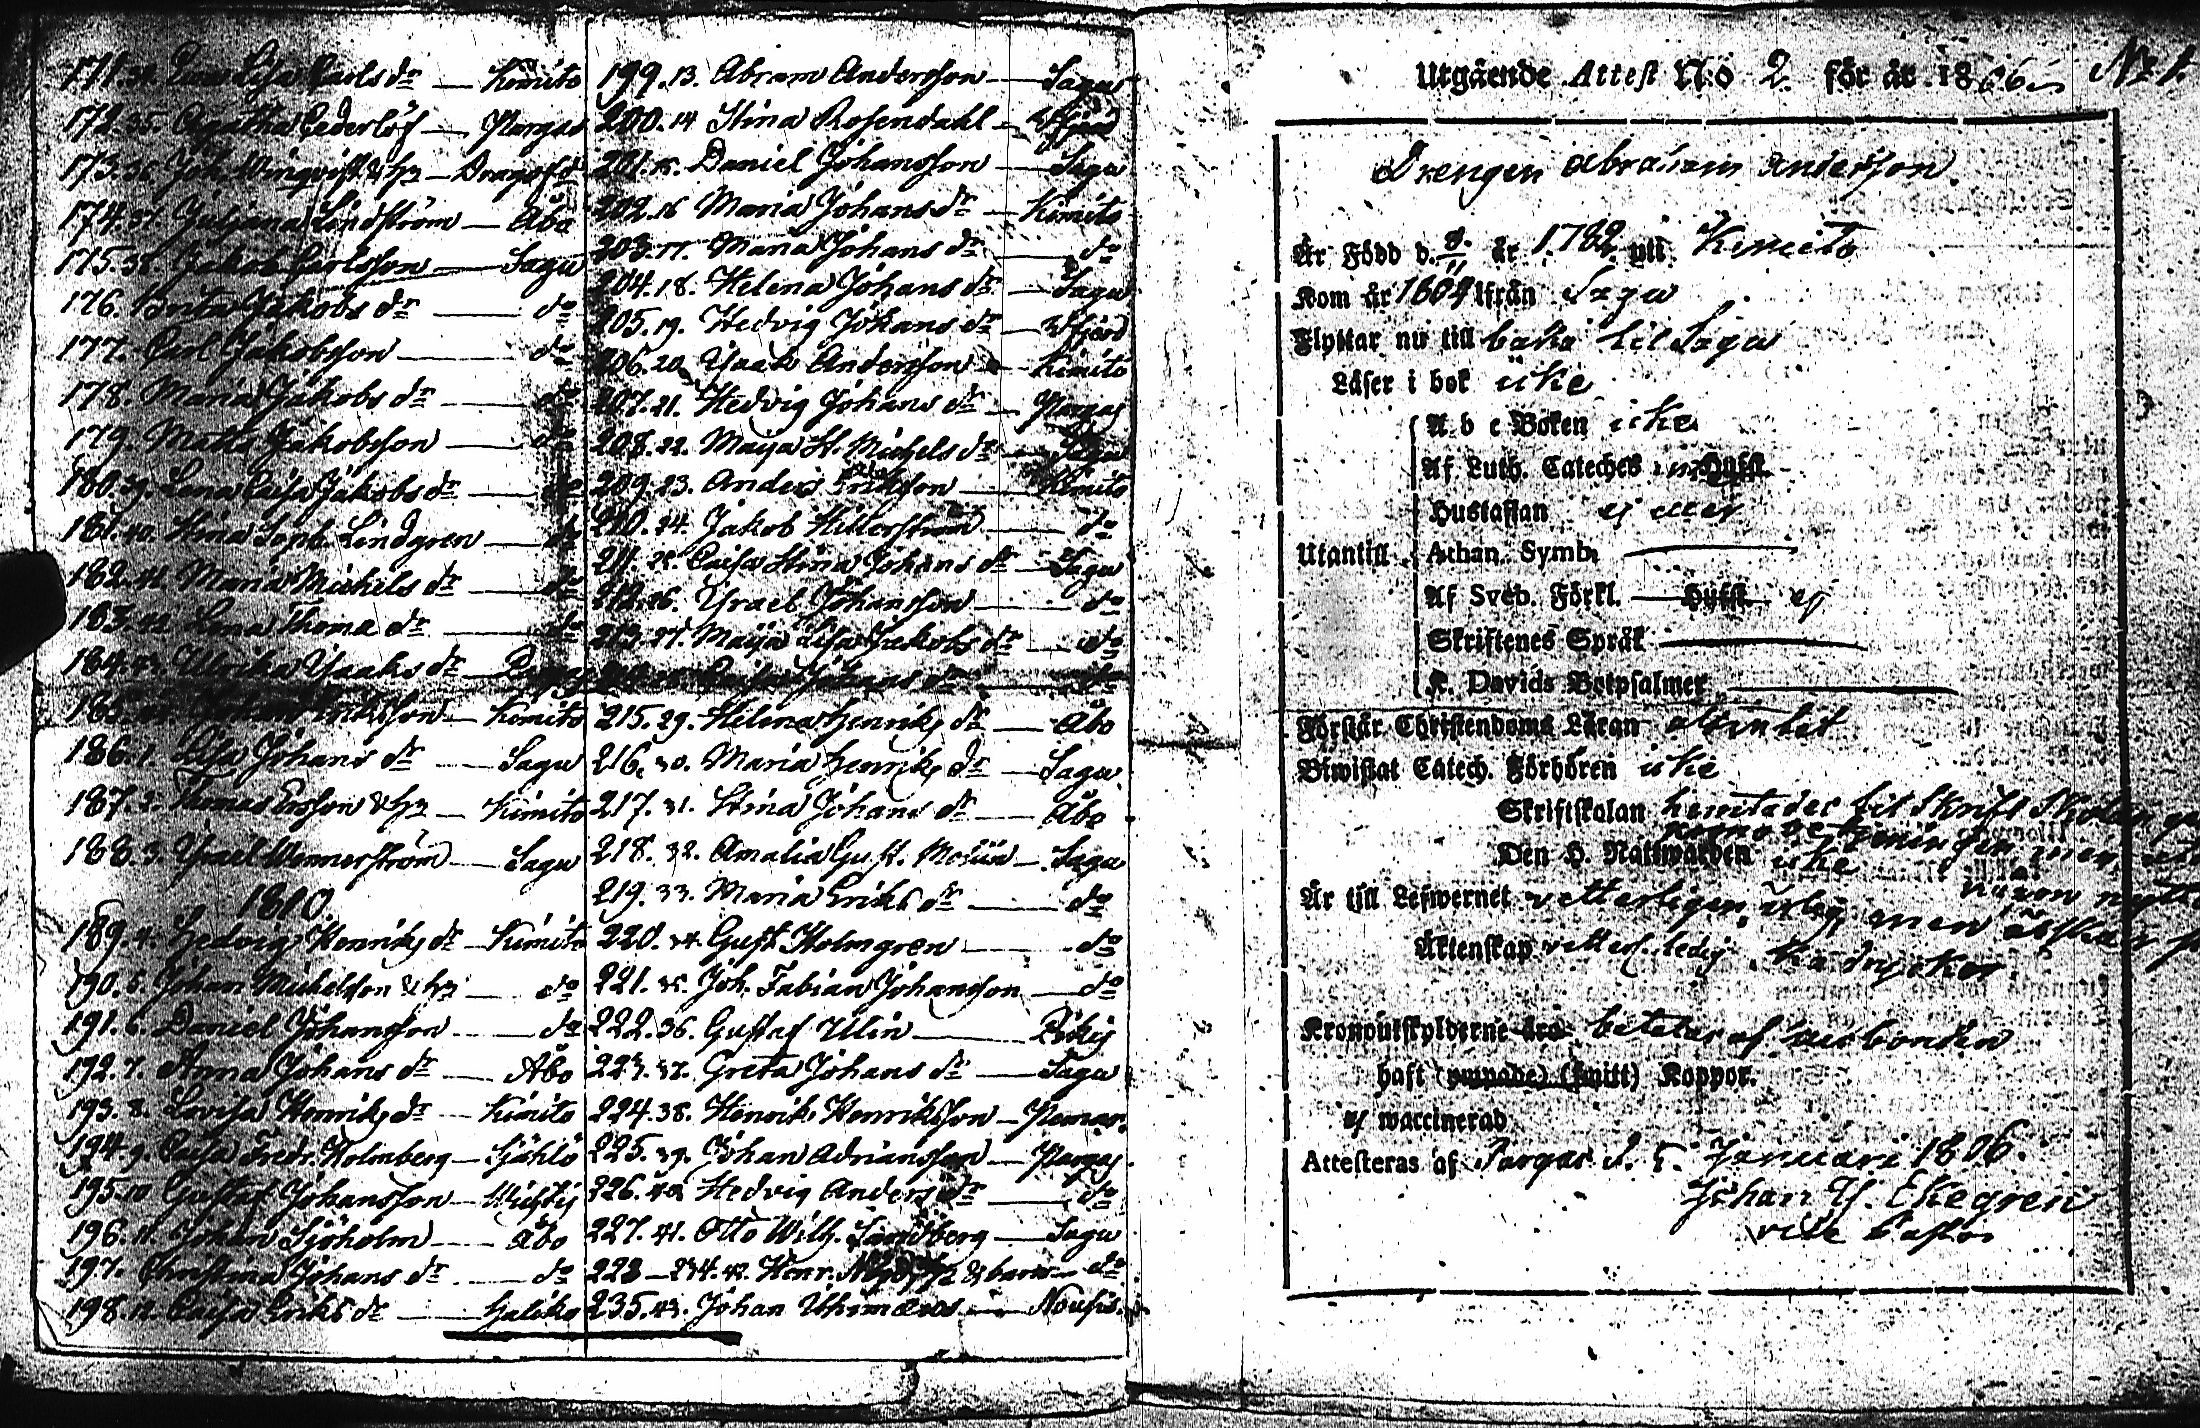 171. Lisa Carls dr — Kimito
172. 35. Agatha Cederlöf — Pargas
173. 36. Joh. Winqvist & h — Dragsf:d
174. 37. Juljana Lindström — Åbo
175. 38. Jakob Carlsson — Sagu
176. Brita Jakobs dr — do
177. Carl Jakobsson — do
178. Maria Jakobs dr — do
179. Matts Jakobsson — do
180. 39. Lena Caisa Jakobs dr — do
181. 40. Stina Soph. Lindgren — do
182. 41. Maria Michels dr — do
183. 42. Lena Thoma dr — do
184. 43. Ulrika Isaks dr —
185. Eriksson — Kimito
186. 1. Lisa Johans dr — Sagu
187. 2. Thomas Ersson & h — Kimito
188. 3. Israel Wennerström — Sagu
1810
189. 4. Hedvig Henriks dr — Kimito
190. 5. Johan Michelsson & h — do
191. 6. Daniel Johansson — do
192. 7. Anna Johans dr — Åbo
193. 8. Lovisa Henriks dr — Kimito
194. 9. Caisa Fredr. Holmberg — Själö
195. 10. Gustaf Johansson —
196. 11. Johan Sjöholm — Åbo
197. Christina Johans dr — do
198. 12. Caisa Eriks dr — Haliko
199. 13. Abram Andersson — Sagu
200. 14. Stina Rosendahl — Wfjärd
201. 15. Daniel Johansson — Sagu
202. 16. Maria Johans dr — Kimito
203. 17. Maria Johans dr — do
204. 18. Helena Johans dr — Sagu
205. 19. Hedvig Johans dr — Wfjärd
206. 20. Isaak Andersson — Kimito
207. 21. Hedvig Johans dr — Pargas
208. 22. Maja St. Michels dr — Sagu
209. 23. Anders Eriksson — Kimito
210. 24. Jakob Hillerström — do
211. 25. Caisa Stina Johans dr — Sagu
212. 26. Israel Johansson — do
213. 27. Maija Lisa Jakobs dr — do
214. 28. Caisa Johans dr — do
215. 29. Helena Henriks dr — Åbo
216. 30. Maria Henriks dr — Sagu
217. 31. Stina Johans dr — Åbo
218. 32. Amalia Gust. — Sagu
219. 33. Maria Eriks dr — do
220. 34. Gust. Holmgren — do
221. 35. Joh. Fabian Johansson — do
222. 36. Gustaf Ulin — Pikis
223. 37. Greta Johans dr — Sagu
224. 38. Henrik Henriksson — Pemar.
225. 39. Johan Adriansson — Pargas
226. 40. Hedvig Anders dr — do
227. 41. Otto Wilh. Sandberg — Sagu
228–234. 42. Henr. & barn — do
235. 43. Johan — Nousis.
Utgående Attest N:o 2. för år 1806 No 1.
Drengen Abraham Andersson
Är Född d. 8/11 år 1782 uti Kimito
Kom år 1804 ifrån Sagu
Flyttar nu till baka til Sagu
Läser i bok icke
A b c Boken icke
Af Luth. Cateches Hufst.
Hustaflan ej eller
Utantill Athan. Symb.
Af Sveb. Förkl. Hufst. ej
Skriftenes Språk
K. Davids Botpsalmer
Förstår Christendoms Läran
Biwistat Catech. Förhören icke
Skriftskolan til Skrift Skolan
Den H. Nattwarden icke
Är till Lefwernet vetterligen ärlig, men älskar
Äktenskap ledig. drycker.
Kronoutskylderne äro betalas af husbonden
haft (ympade) (smitt) Koppor.
ej waccinerad
Attesteras af Pargas d. 5. Januari 1806.
Johan H. Ekegren
vice Pastor